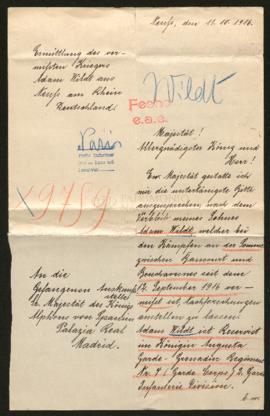 Neuss, den 11.10.1916.
Ermittlung des ver-
mißten Kriegers
Adam Wildt aus
Neuss am Rhein
Deutschland.
Wildt
Fecha
Paris
X9789
Majestät!
Allergnädigster König und
Herr!
Ew. Majestät gestatte ich
mir die untertänigste Bitte
auszusprechen, nach dem
Verbleib meines Sohnes
Adam Wildt, welcher bei
den Kämpfen an der Somme
zwischen Rancourt und
Bouchavesnes seit dem
17. September 1916 ver-
mißt ist, Nachforschungen
anstellen zu lassen.
Adam Wildt ist Reservist
im Königin Augusta
Garde-Grenadier Regiment
Nr. 4 1 Garde Corps 2 Garde
Infanterie Division.
An die
Gefangenen Auskunft
stelle
Sr. Majestät des Königs
Alphons von Spanien
Palazia Real
Madrid.